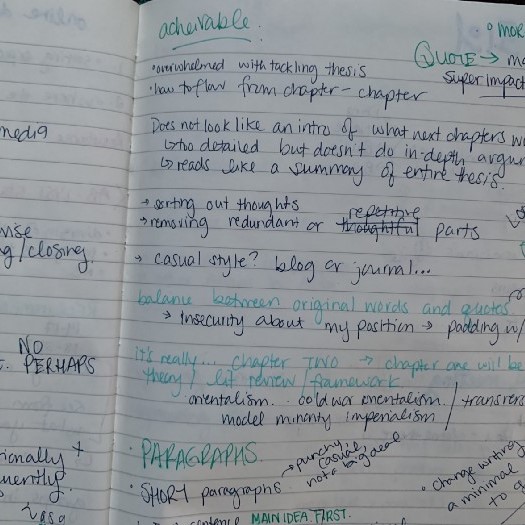 achievable:
• MORE
QUOTE → ma
SUPER IMPACT
• overwhelmed with tackling thesis
• how to flow from chapter - chapter
Does not look like an intro of what next chapters w
↳ too detailed but doesn't do in-depth argum
↳ reads like a summary of entire thesis.
→ sorting out thoughts
repetitive
→ removing redundant or thoughtful parts
→ casual style? blog or journal...
balance between original words and quotes
→ Insecurity about my position → padding w/
it's really... chapter TWO → chapter one will be
theory / lit review / framework
orientalism.. cold war orientalism / transfers
model minority imperialism
• PARAGRAPHS.
• SHORT paragraphs → punchy,
casual,
not a big deal
• change writing
a minimal
to q
sentence MAIN IDEA FIRST.
media
g/closing
NO
PERHAPS